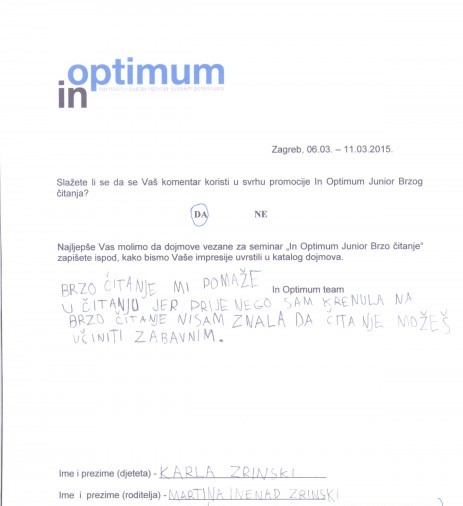 in optimum
Zagreb, 06.03. – 11.03.2015.
Slažete li se da se Vaš komentar koristi u svrhu promocije In Optimum Junior Brzog
čitanja?
DA NE
Najljepše Vas molimo da dojmove vezane za seminar „In Optimum Junior Brzo čitanje“
zapišete ispod, kako bismo Vaše impresije uvrstili u katalog dojmova.
In Optimum team
BRZO ČITANJE MI POMAŽE
U ČITANJU JER PRIJE NEGO SAM KRENULA NA
BRZO ČITANJE NISAM ZNALA DA ČITANJE MOŽEŠ
UČINITI ZABAVNIM.
Ime i prezime (djeteta) - KARLA ZRINSKI
Ime i prezime (roditelja) - MARTINA I NENAD ZRINSKI